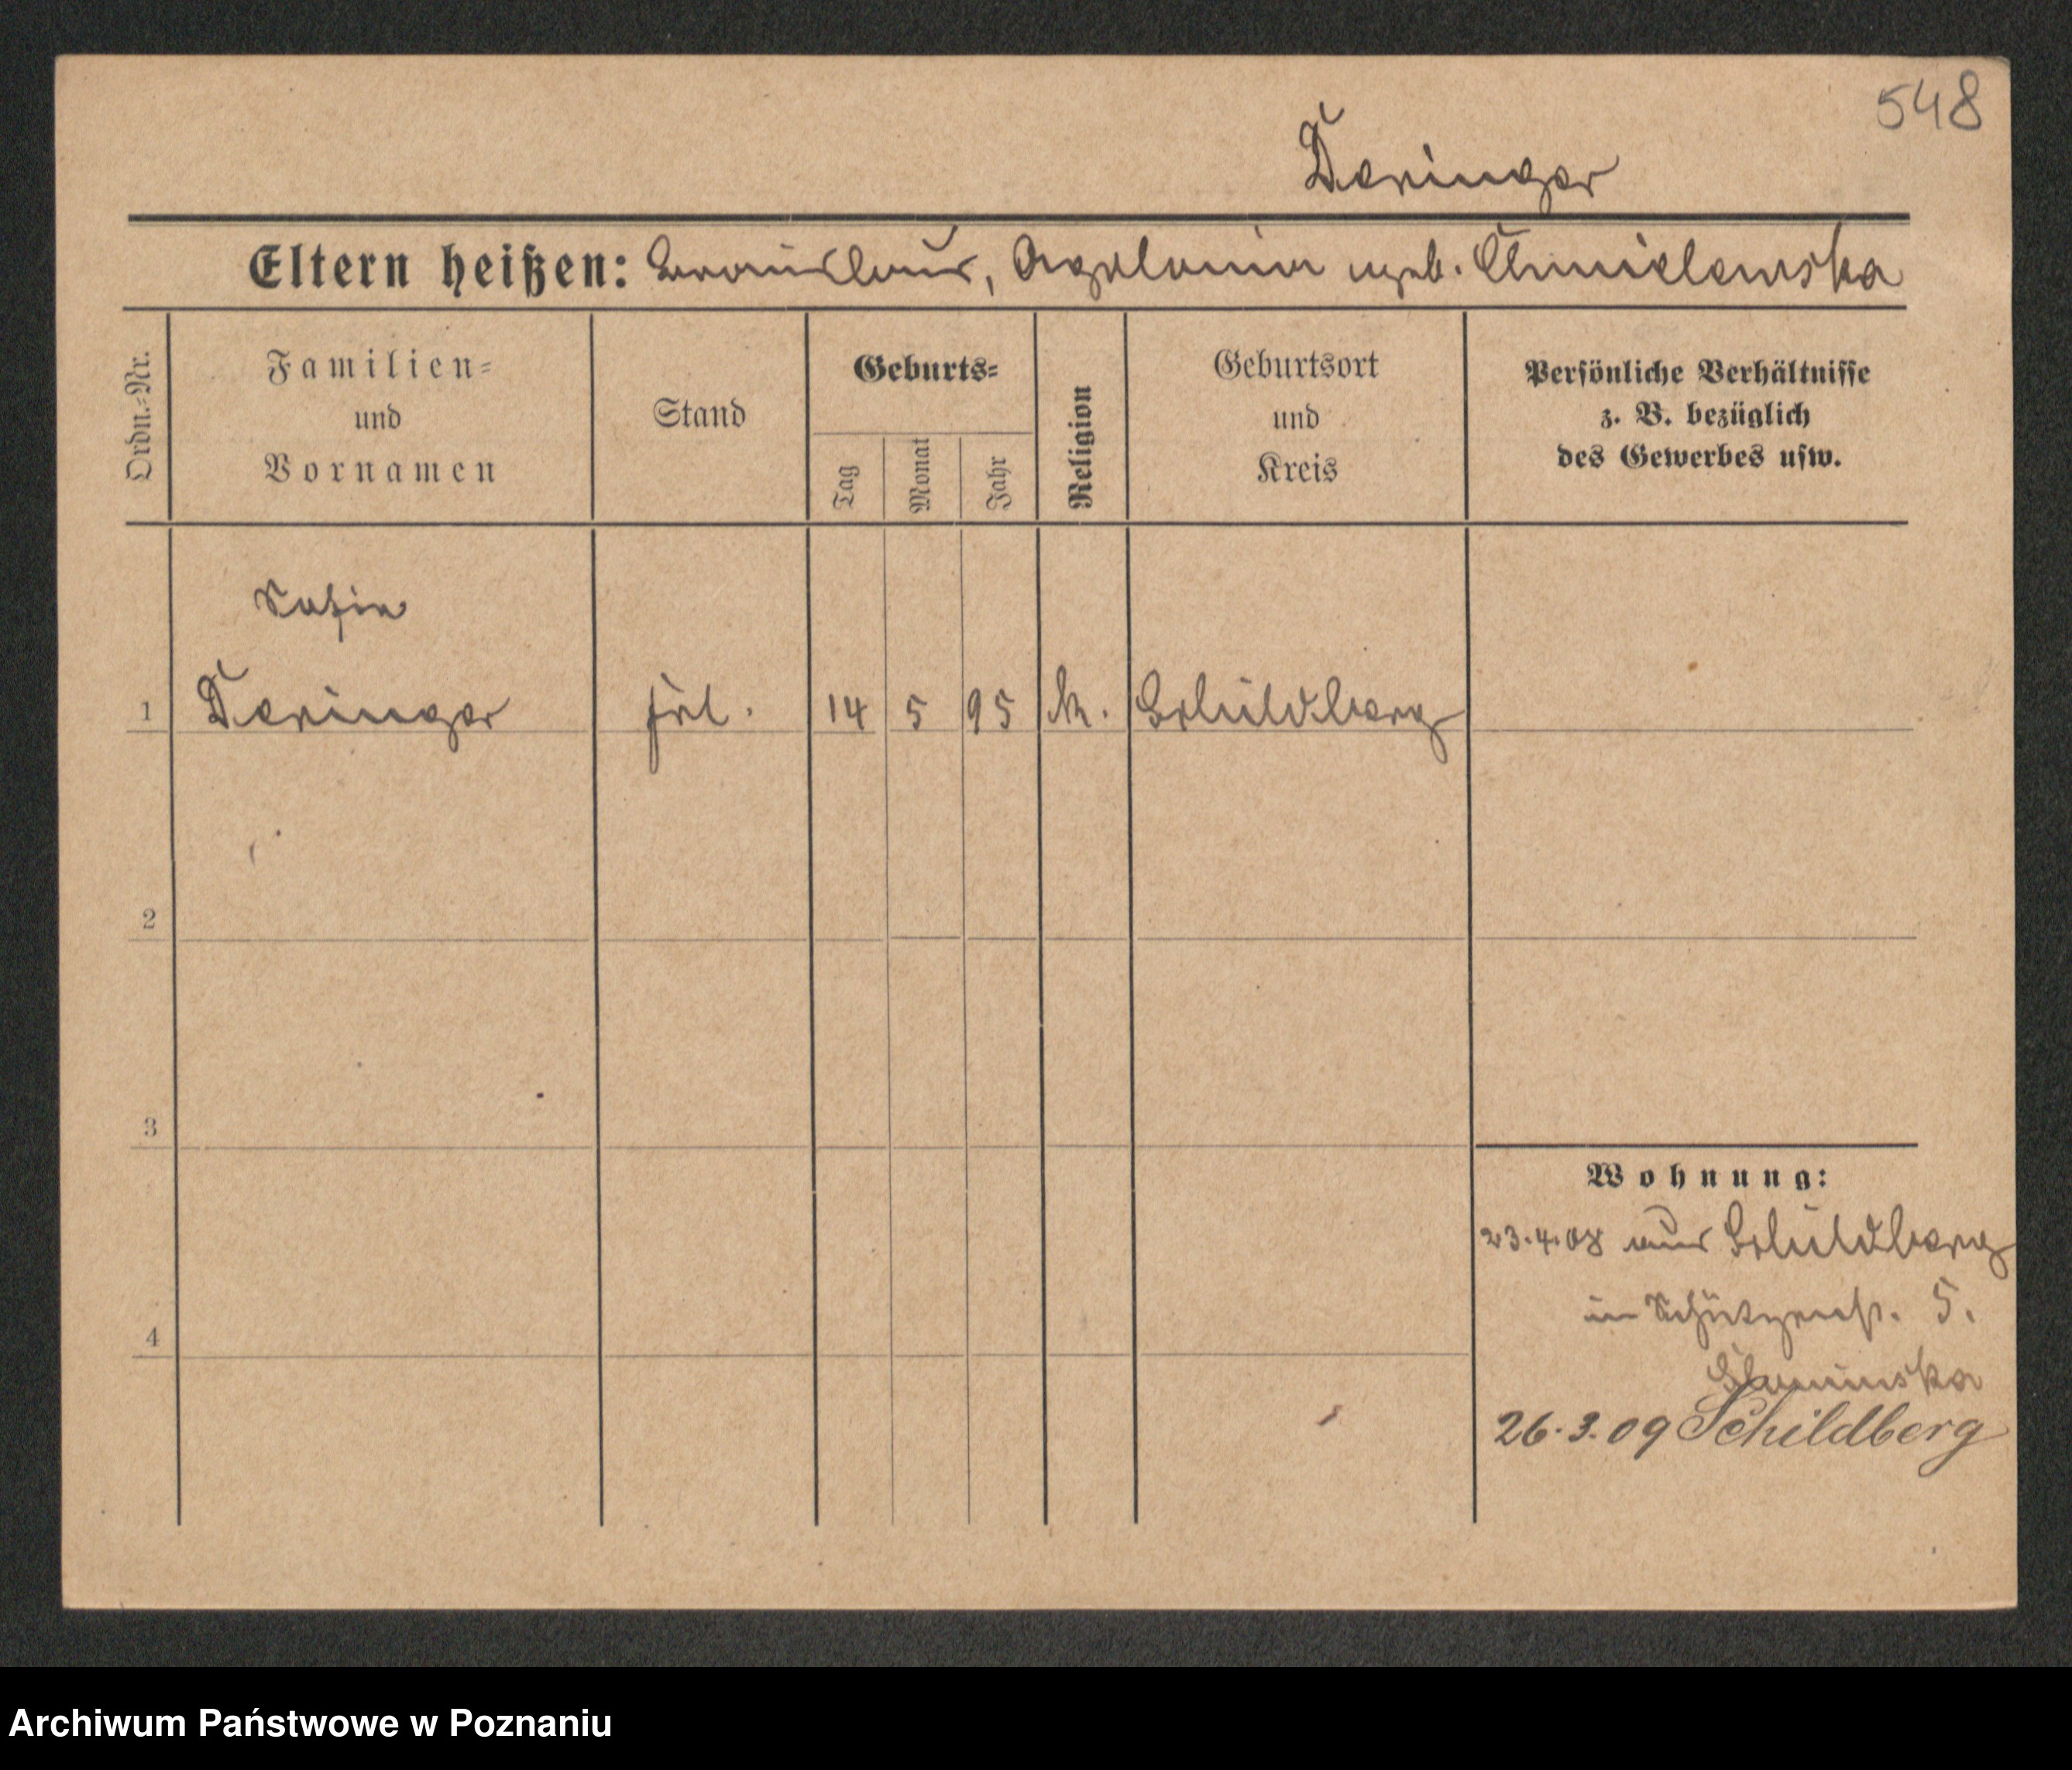 548
Deringer
Eltern heißen: Bronislaus, Apolonia geb. Chmielewska
Ordn.-Nr.
Familien-
und
Vornamen
Stand
Geburts-
Tag
Monat
Jahr
Religion
Geburtsort
und
Kreis
Persönliche Verhältnisse
z. B. bezüglich
des Gewerbes usw.
Sofie
1 Deringer frl. 14 5 95 k. Schildberg
2
3
4
Wohnung:
23.4.08 aus Schildberg
in Schützenstr. 5.
26.3.09 Schildberg
Archiwum Państwowe w Poznaniu